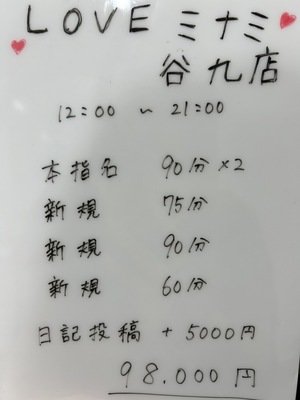 LOVE ミナミ
谷九店
12:00 ~ 21:00
本指名 90分×2
新規 75分
新規 90分
新規 60分
日記投稿 + 5000円
98.000円